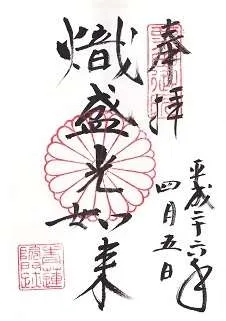 奉拝
平成二十六年
四月五日
熾盛光如来
青蓮院門跡